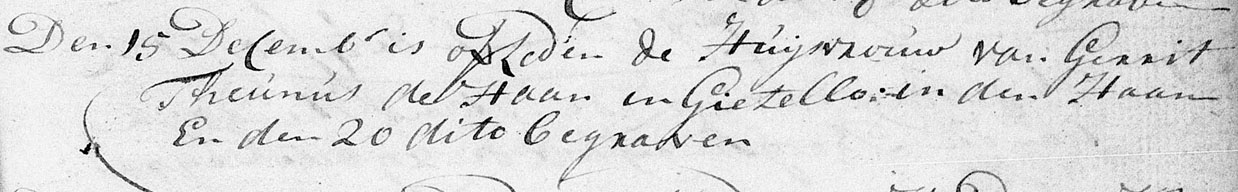 begraven
Den 15 Decemb<sup>r</sup> is overleden de Huijsvrouw van Gerrit
Theunus de Haan in Gietello: in den Haan
En den 20 dito begraven